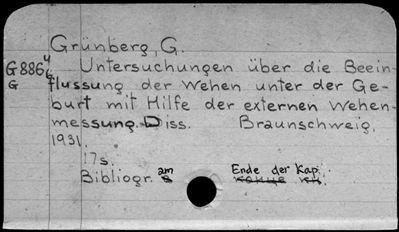 Grünberg, G.
G8864 Untersuchungen über die Beein-
G 6 flussung der Wehen unter der Ge-
burt mit Hilfe der externen Wehen-
messung. Diss. Braunschweig,
1931.
17s.
Bibliogr. am Ende der Kap.